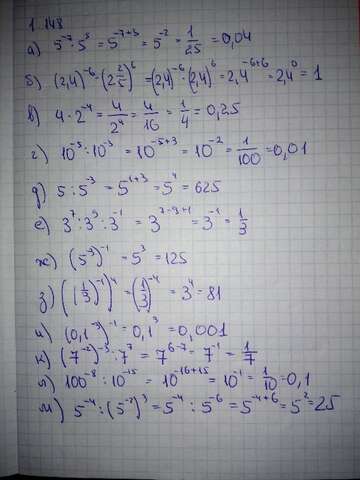 1.148
а) 5⁻⁷·5⁵ = 5⁻⁷⁺⁵ = 5⁻² = 1/25 = 0,04
б) (2,4)⁻⁶·(2 2/5)⁶ = (2,4)⁻⁶·(2,4)⁶ = 2,4⁻⁶⁺⁶ = 2,4⁰ = 1
в) 4·2⁻⁴ = 4/2⁴ = 4/16 = 1/4 = 0,25
г) 10⁻⁵:10⁻³ = 10⁻⁵⁺³ = 10⁻² = 1/100 = 0,01
д) 5:5⁻³ = 5¹⁺³ = 5⁴ = 625
е) 3⁷:3⁹:3⁻¹ = 3⁷⁻⁹⁺¹ = 3⁻¹ = 1/3
ж) (5⁻³)⁻¹ = 5³ = 125
з) ((1/3)⁻¹)⁴ = (1/3)⁻⁴ = 3⁴ = 81
и) (0,1⁻³)⁻¹ = 0,1³ = 0,001
к) (7⁻²)⁻³:7⁷ = 7⁶⁻⁷ = 7⁻¹ = 1/7
л) 100⁻⁸:10⁻¹⁵ = 10⁻¹⁶⁺¹⁵ = 10⁻¹ = 1/10 = 0,1
м) 5⁻⁴:(5⁻²)³ = 5⁻⁴:5⁻⁶ = 5⁻⁴⁺⁶ = 5² = 25